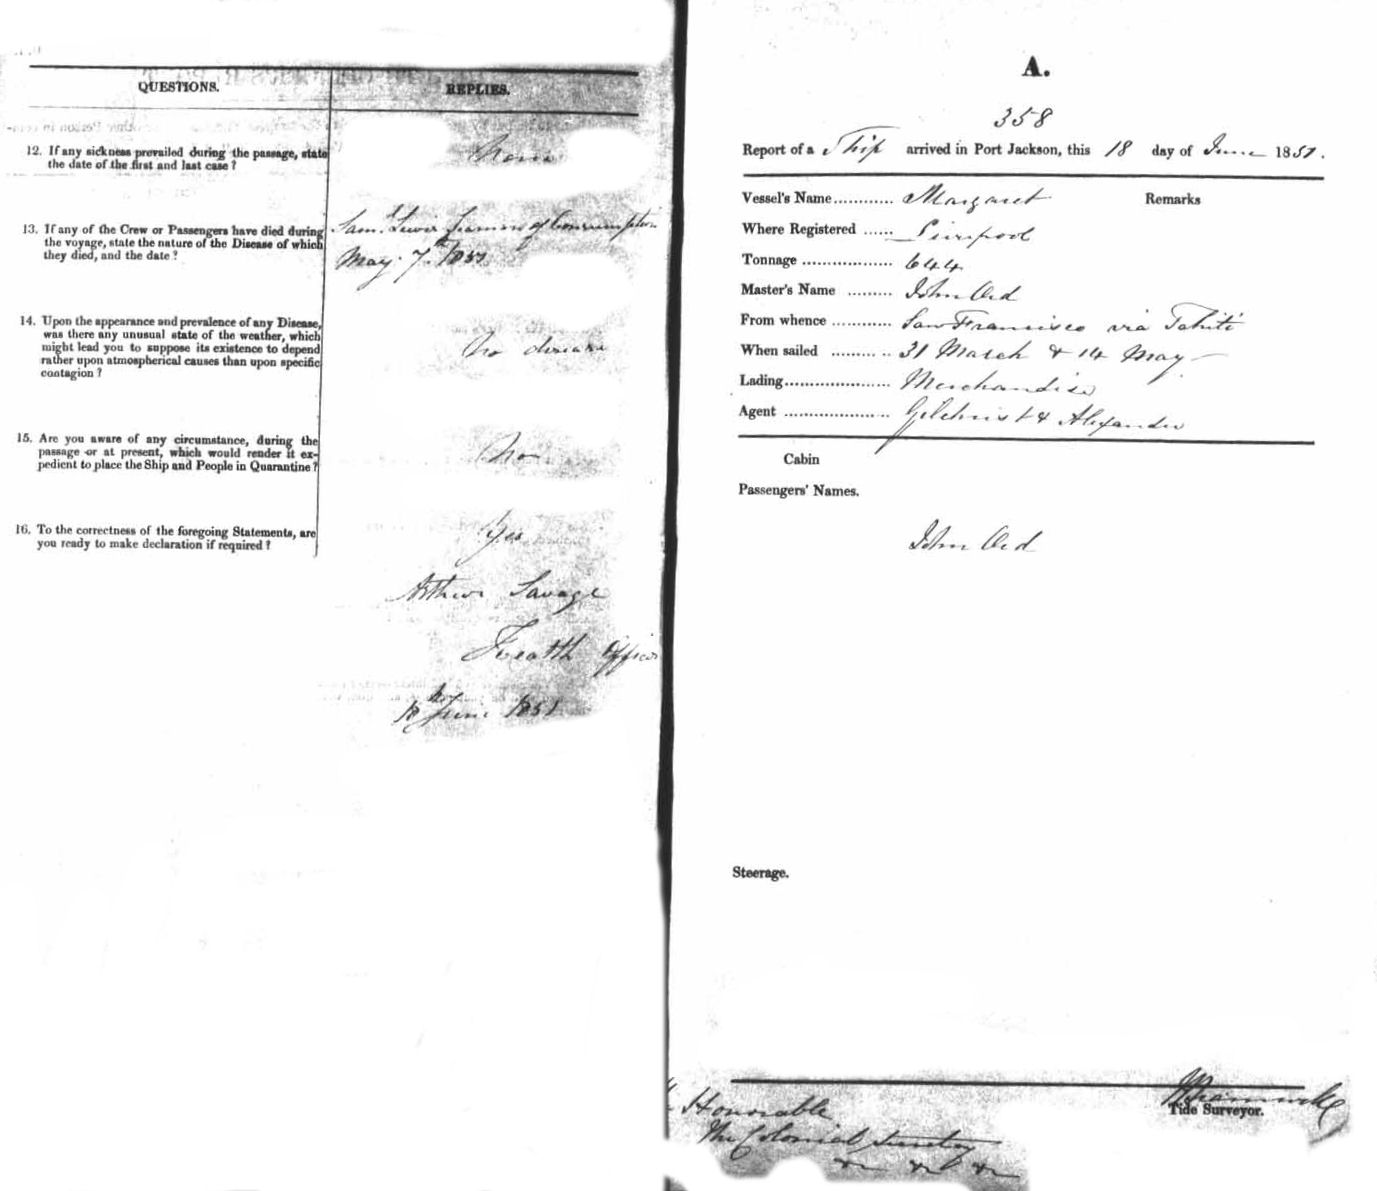 QUESTIONS.
REPLIES.
12. If any sickness prevailed during the passage, state
the date of the first and last case ?
None
13. If any of the Crew or Passengers have died during
the voyage, state the nature of the Disease of which
they died, and the date ?
Saml. Lewis Seaman of Consumption
May 7th 1851
14. Upon the appearance and prevalence of any Disease,
was there any unusual state of the weather, which
might lead you to suppose its existence to depend
rather upon atmospherical causes than upon specific
contagion ?
No disease
15. Are you aware of any circumstance, during the
passage or at present, which would render it ex-
pedient to place the Ship and People in Quarantine ?
No
16. To the correctness of the foregoing Statements, are
you ready to make declaration if required ?
Yes
Arthur Savage
Health Officer
18 June 1851
A.
358
Report of a Ship arrived in Port Jackson, this 18 day of June 1851.
Vessel's Name............ Margaret
Remarks
Where Registered ...... Liverpool
Tonnage .................. 644
Master's Name ......... John Ord
From whence ............ San Francisco via Tahiti
When sailed ........... 31 March & 14 May
Lading..................... Merchandise
Agent ..................... Gilchrist & Alexander
Cabin
Passengers' Names.
John Ord
Steerage.
Tide Surveyor.
Honorable
The Colonial Secretary
&c &c &c